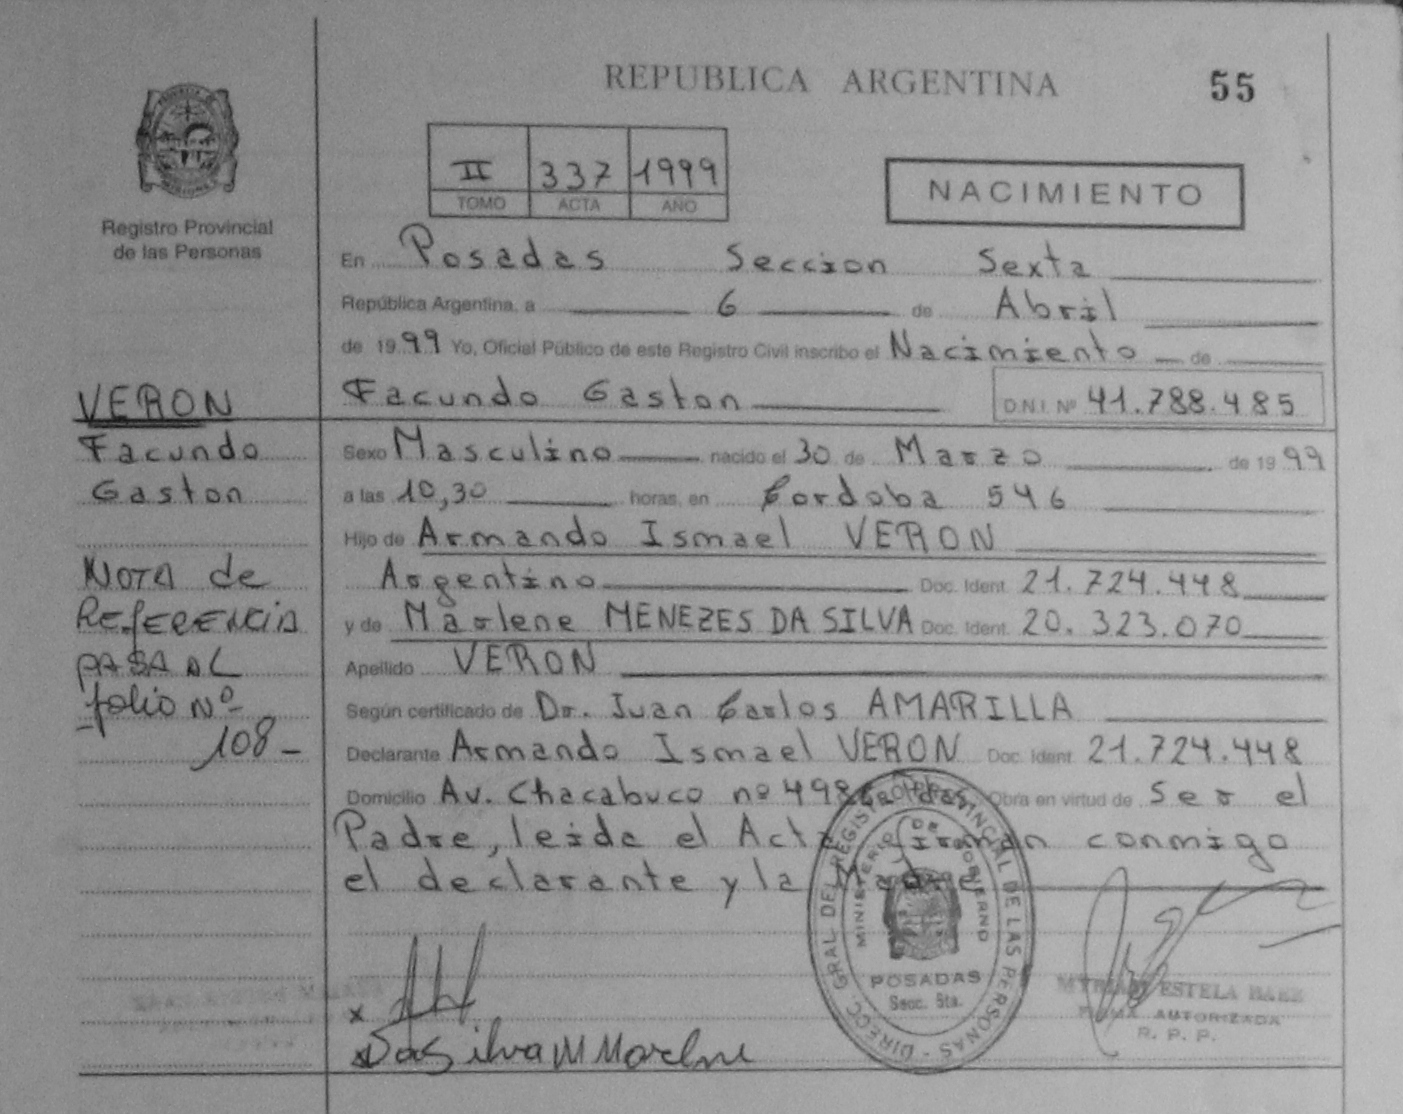 REPUBLICA ARGENTINA 55
II 337 1999
TOMO ACTA AÑO
NACIMIENTO
Registro Provincial
de las Personas
En Posadas Seccion Sexta
República Argentina, a 6 de Abril
de 19 99 Yo, Oficial Público de este Registro Civil inscribo el Nacimiento de
Facundo Gaston D.N.I. Nº 41.788.485
Sexo Masculino nacido el 30 de Marzo de 19 99
a las 10,30 horas, en Cordoba 546
Hijo de Armando Ismael VERON
Argentino Doc. Ident. 21.724.448
y de Marlene MENEZES DA SILVA Doc. Ident. 20.323.070
Apellido VERON
Según certificado de Dr. Juan Carlos AMARILLA
Declarante Armando Ismael VERON Doc. Ident. 21.724.448
Domicilio Av. Chacabuco nº 498 Obra en virtud de Ser el
Padre, leida el Acta firman conmigo
el declarante y la Madre
VERON
Facundo
Gaston
NOTA de
REFERENCIA
PASA AL
folio Nº
108-
DIRECC. GRAL DEL REGISTRO PROVINCIAL DE LAS PERSONAS
MINISTERIO DE GOBIERNO
POSADAS
Secc. 6ta.
x
x Da Silva M Marlene
MYRIAM ESTELA BAEZ
FIRMA AUTORIZADA
R. P. P.